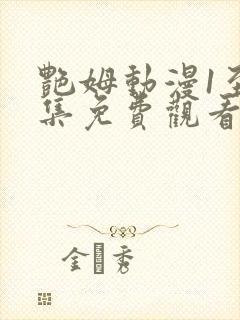 艷姆動漫1至
集免費觀看
金 秀